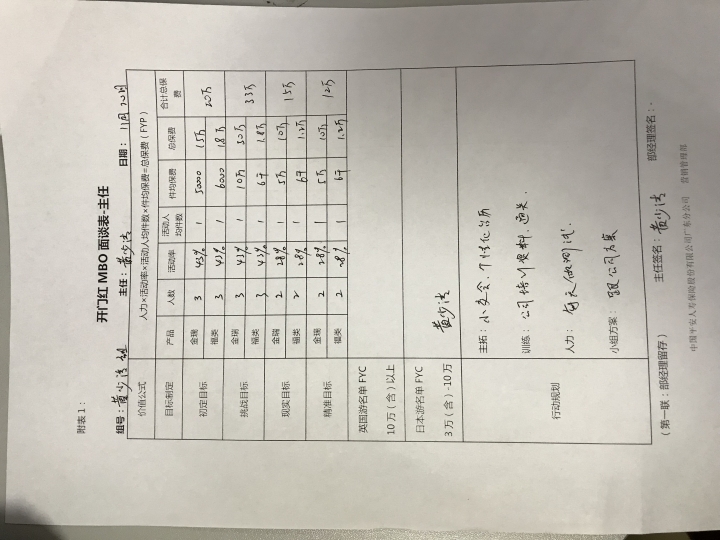 附表 1：
开门红 MBO 面谈表-主任
组号：黄少清 主任：黄少清 日期：11月20日
价值公式 人力×活动率×活动人均件数×件均保费=总保费（FYP）
目标制定 产品 人数 活动率 活动人均件数 件均保费 总保费 合计总保费
初定目标 金瑞 3 43% 1 50000 15万 20万
福类 3 43% 1 6000 1.8万
挑战目标 金瑞 3 43% 1 10万 30万 33万
福类 3 43% 1 6千 1.8万
现实目标 金瑞 2 28% 1 5万 10万 15万
福类 2 28% 1 6千 1.2万
精准目标 金瑞 2 28% 1 5万 10万 12万
福类 2 28% 1 6千 1.2万
英国游名单 FYC
10 万（含）以上
日本游名单 FYC
3 万（含）-10万
黄少清
行动规划
主拓：小交会、个性化台历
训练：公司培训资料、通关.
人力：每天做测试.
小组方案：跟公司方案
（第一联：部经理留存） 主任签名：黄少清 部经理签名：
中国平安人寿保险股份有限公司广东分公司 营销管理部